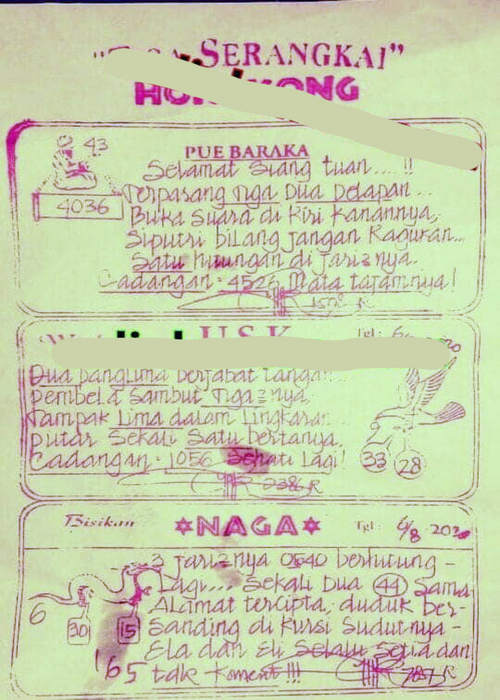 SERANGKAI”
HONGKONG
43
4036
PUE BARAKA
Selamat siang tuan.... !!
Terpasang Tiga Dua Delapan...
Buka suara di kiri kanannya,
Siputri bilang jangan Raguran...
Satu hitungan di jari2nya.
Cadangan : 4526 Mata tajamnya!
U.S.K
Tgl :
Dua panglima berjabat tangan...
pembela sambut Tiga2nya,
Tampak Lima dalam lingkaran...
putar sekali satu bertanya,
Cadangan : 1056 Sehati Lagi!
33
28
2386 R
Bisikan
NAGA
Tgl : 6/8 2020
3 jari2nya 0540 berhitung -
Lagi.... Sekali Dua 44 Sama
Alamat tercipta, duduk ber-
Sanding di kursi sudutnya -
Ela dan Eli Selalu Setia dan
tak koment !!!
6
30
15
'65
7851 R